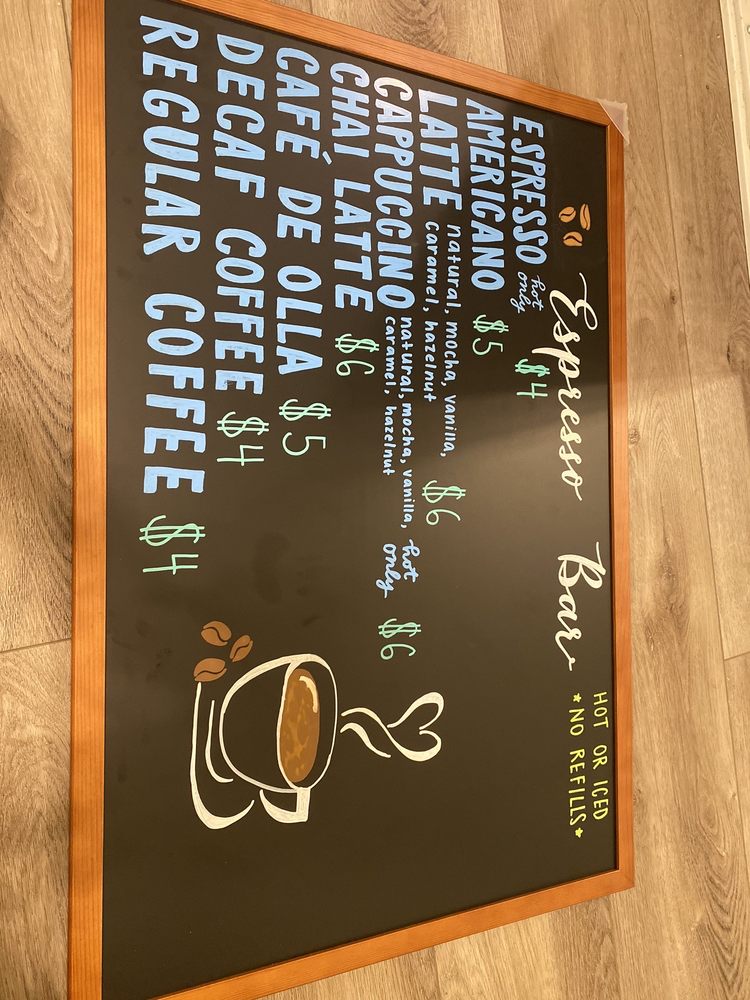 Espresso Bar
HOT OR ICED
*NO REFILLS*
ESPRESSO hot only $4
AMERICANO $5
LATTE natural, mocha, vanilla, caramel, hazelnut $6
CAPPUCCINO natural, mocha, vanilla, caramel, hazelnut hot only $6
CHAI LATTE $6
CAFÉ DE OLLA $5
DECAF COFFEE $4
REGULAR COFFEE $4